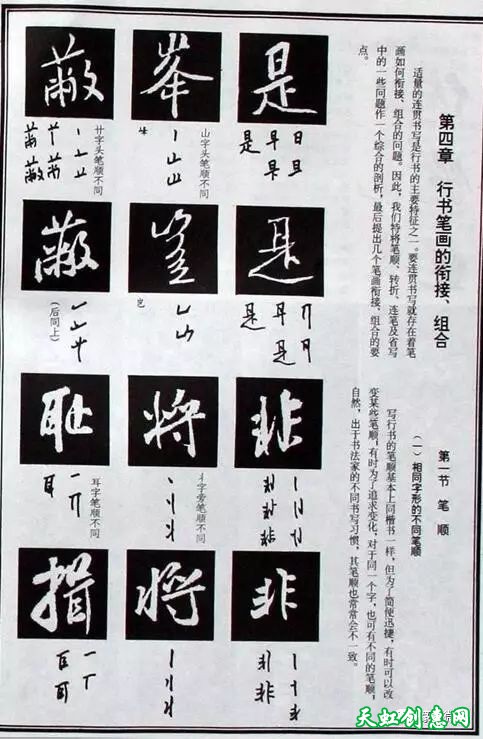 第四章　行书笔画的衔接、组合
适量的连贯书写是行书的主要特征之一。要连贯书写就存在着笔
画如何衔接、组合的问题。因此，我们特将笔顺、转折、连笔及省写
中的一些问题作一个综合的剖析，最后提出几个笔画衔接、组合的要
点。
第一节　笔　顺
（一）相同字形的不同笔顺
写行书的笔顺基本上同楷书一样，但为了简便迅捷，有时可以改
变某些笔顺，有时为了追求变化，对于同一个字，也可有不同的笔顺，
自然，出于书法家的不同书写习惯，其笔顺也常常会不一致。
是
是
非
非
峯
山字头笔顺不同
将
丬字旁笔顺不同
将
蔽
廾字头笔顺不同
蔽
（后同上）
耻
耳字笔顺不同
揖
天虹创意网